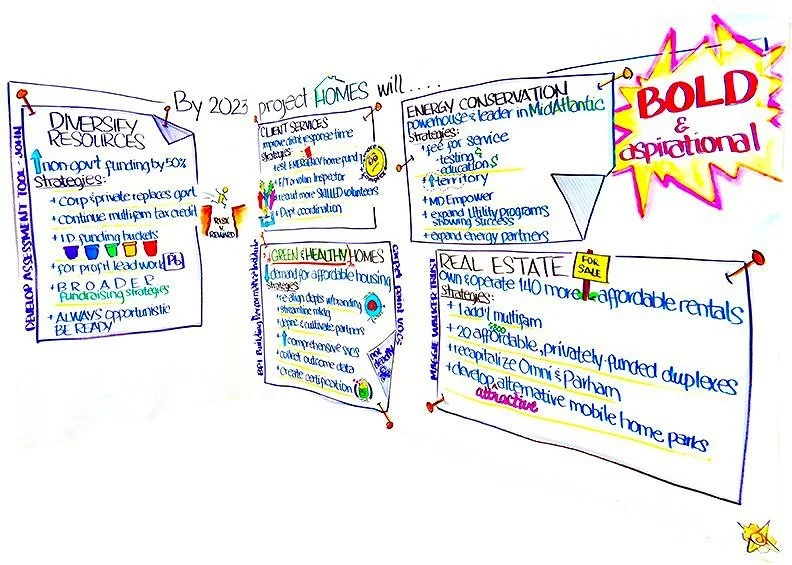 By 2023 project HOMES will....
BOLD
&
aspirational
DEVELOP ASSESSMENT TOOL - JOHN
DIVERSIFY
RESOURCES
non-gov't funding by 50%
Strategies:
+ Corp & private replaces govt
+ Continue multifam tax credit
+ ID funding buckets
+ for profit lead work Pb
+ BROADER
fundraising strategies
+ ALWAYS opportunistic
BE READY
RISK
V.
REWARD
CLIENT SERVICES
improve client response time
Strategies
+ est EMERGENCY home fund
+ F/T volun Inspector
+ recruit more SKILLED volunteers
+ Dept coordination
ENERGY CONSERVATION
powerhouse & leader in MidAtlantic
Strategies:
+ fee for service
testing &
education $
+ territory
+ MD Empower
+ expand Utility programs
showing success
+ expand energy partners
GREEN & HEALTHY HOMES
demand for affordable housing
Strategies
+ re align depts w/branding
+ streamline mktg
+ define & cultivate partners
+ comprehensive svcs
+ collect outcome data
+ create certification
MAGGIE WALKER TRUST
REAL ESTATE
FOR
SALE
own & operate 140 more affordable rentals
Strategies:
+ 1 add'l multifam
+ 20 affordable, privately-funded duplexes
+ recapitalize Omni & Parham
+ develop alternative mobile home parks
attractive